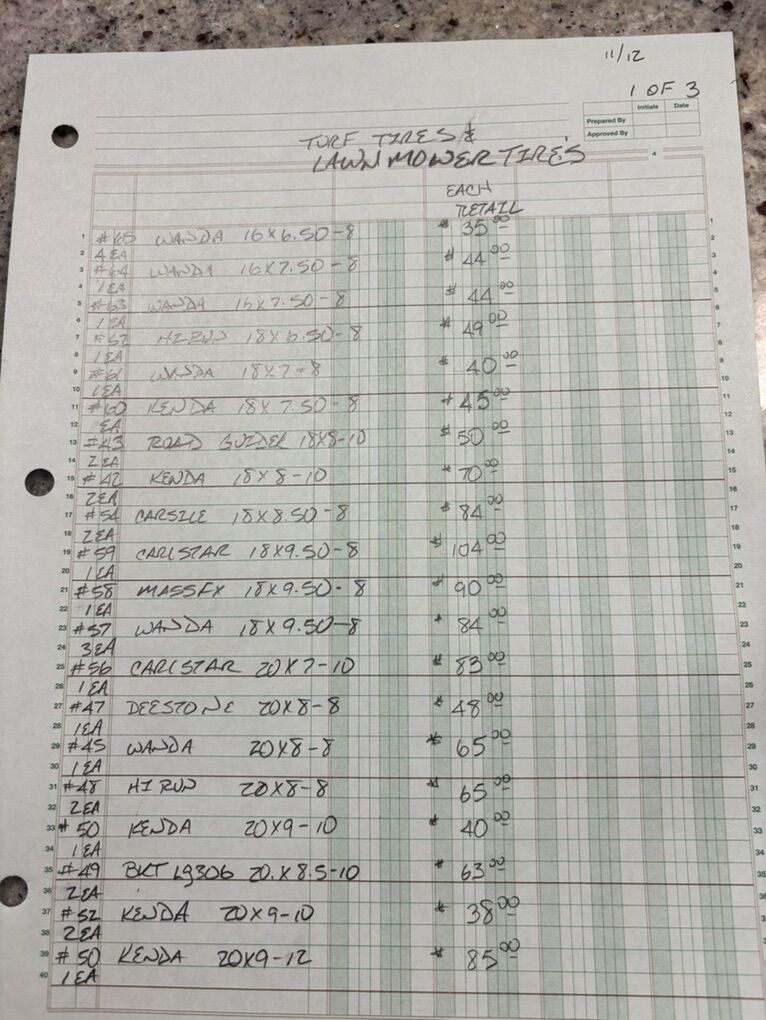 11/12
1 OF 3
Initials Date
Prepared By
Approved By
TURF TIRES &
LAWNMOWER TIRE'S
4
EACH
RETAIL
1 #65 WANDA 16X6.50-8 $35.00 1
2 4EA 2
3 #64 WANDA 16X7.50-8 $44.00 3
4 1EA 4
5 #63 WANDA 16X7.50-8 $44.00 5
6 1EA 6
7 #62 HI RUN 18X6.50-8 $49.00 7
8 1EA 8
9 #61 WANDA 18X7-8 $40.00 9
10 1EA 10
11 #60 KENDA 18X7.50-8 $45.00 11
12 1EA 12
13 #43 ROAD GUIDER 18X8-10 $50.00 13
14 2EA 14
15 #42 KENDA 18X8-10 $70.00 15
16 2EA 16
17 #54 CARSILE 18X8.50-8 $84.00 17
18 2EA 18
19 #59 CARLSTAR 18X9.50-8 $104.00 19
20 1EA 20
21 #58 MASSFX 18X9.50-8 $90.00 21
22 1EA 22
23 #57 WANDA 18X9.50-8 $84.00 23
24 3EA 24
25 #56 CARLSTAR 20X7-10 $83.00 25
26 1EA 26
27 #47 DEESTONE 20X8-8 $48.00 27
28 1EA 28
29 #45 WANDA 20X8-8 $65.00 29
30 1EA 30
31 #48 HI RUN 20X8-8 $65.00 31
32 2EA 32
33 #50 KENDA 20X9-10 $40.00 33
34 1EA 34
35 #49 BKT LG306 20.X8.5-10 $63.00 35
36 2EA 36
37 #52 KENDA 20X9-10 $38.00 37
38 2EA 38
39 #50 KENDA 20X9-12 $85.00 39
40 1EA 40